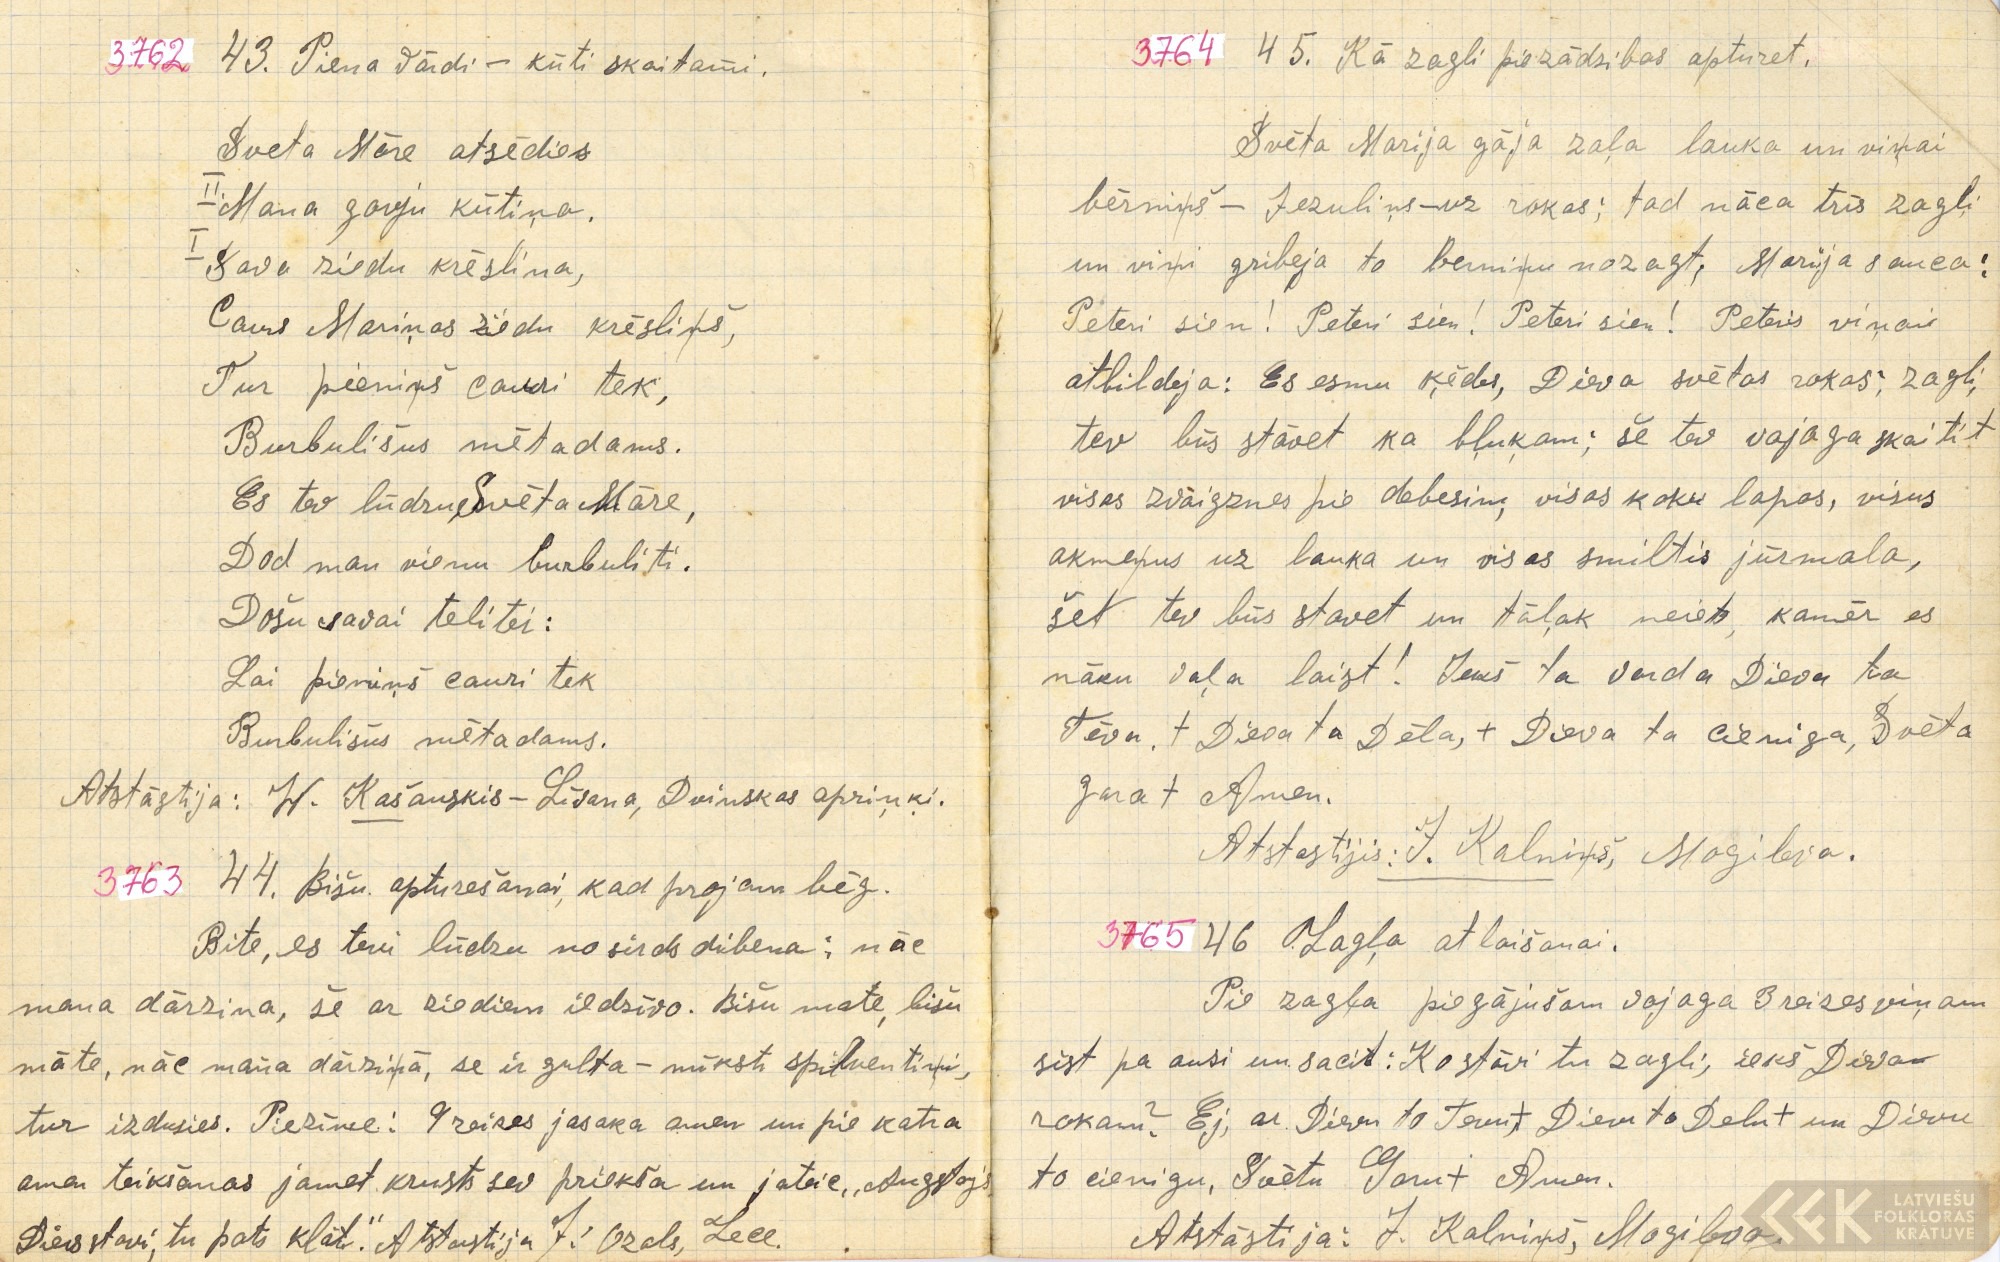 3762 43. Piena vārdi – kūtī skaitami.
Sveta Māre atsēdies
II Mana govju kūtiņa.
I Sava ziedu krēslina,
Caurs Mariņas ziedu krēsliņš,
Tur pieniņš cauri tek,
Burbulišus mētadams.
Es tev lūdzu, Svēta Māre,
Dod man vienu burbuliti.
Došu savai telitei:
Lai pieniņš cauri tek
Burbulišus mētadams.
Atstāstija: W. Kašauskis – Līvana, Dvinskas apriņķi.
3763 44. Bišu apturešanai, kad projam bēg.
Bite, es tevi lūdzu no sirds dibena: nāc
mana dārzina, še ar ziediem iedzīvo. Bišu mate, bišu
māte, nāc mana dārziņā, se ir gulta – mīksti spilventiņi,
tur izdusies. Piezīme: 9 reizes jasaka amen un pie katra
amen teikšanas jamet krusts sev priekša un jateic „Augstajs
Dievs stavi, tu pats klāt." Atstastija J. Ozols, Lece.
3764 45. Kā zagli piezādzibas apturet.
Svēta Marija gāja zaļa lauka un viņai
bērniņš – Jezuliņs – uz rokas; tad nāca trīs zagļi
un viņi gribeja to berniņu nozagt, Marija sauca:
Peteri sien! Peteri sien! Peteri sien! Peteris viņai
atbildeja: Es esmu ķēdes, Dieva svētas rokas; zagli,
tev būs stāvet ka bļuķam; še tev vajaga skaitit
visas zvāigznes pie debesim, visas koku lapas, visus
akmeņus uz lauka un visas smiltis jūrmala,
šet tev būs stavet un tāļak neiet, kamēr es
nāku vaļa laist! Ieks ta varda Dieva ta
Tēva, + Dieva ta Dēla, + Dieva ta cieniga, Svēta
gara + Amen.
Atstastijis: J. Kalniņš, Mogileva.
3765 46 Zagļa atlaišanai.
Pie zagļa piegājušam vajaga 3 reizes viņam
sist pa ausi un sacit: Ko stāvi tu zagli, iekš Dieva
rokam? Ej, ar Dievu to Tevu + Dievu to Delu + un Dievu
to cienigu, Svētu Garu + Amen.
Atstāstija: J. Kalniņš, Mogileva.
LATVIEŠU
FOLKLORAS
KRĀTUVE